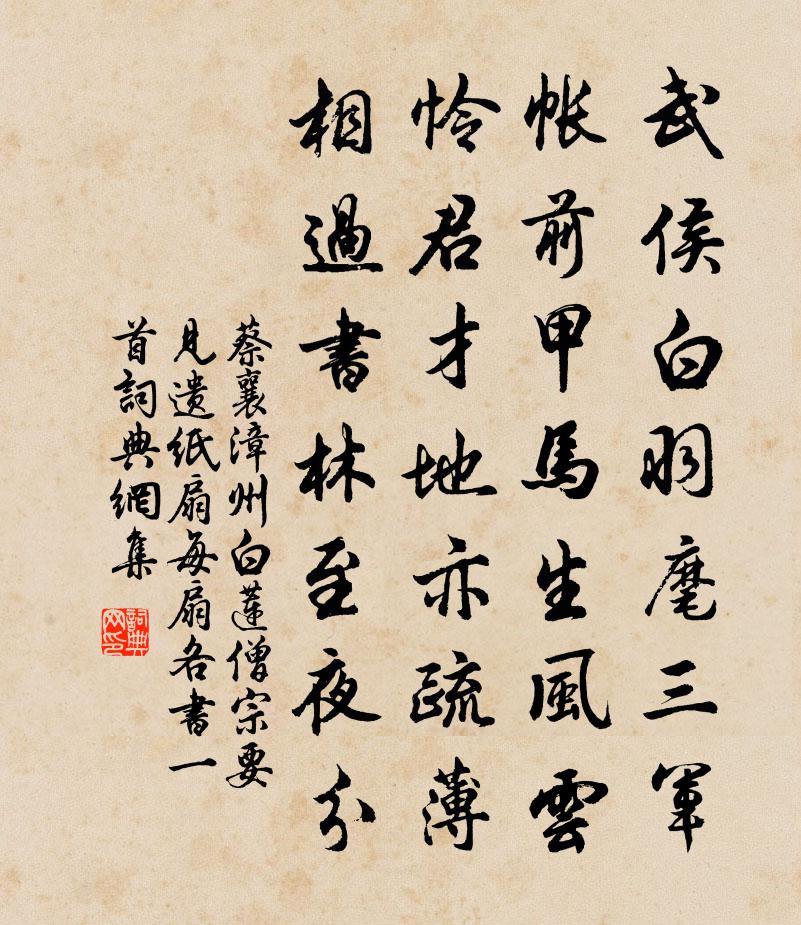 武侯白羽麾三軍
帳前甲馬生風雲
怜君才地亦疏薄
相過書林至夜分
蔡襄漳州白蓮僧宗要
見遺纸扇每扇各書一
首詞典網集
詞典網印